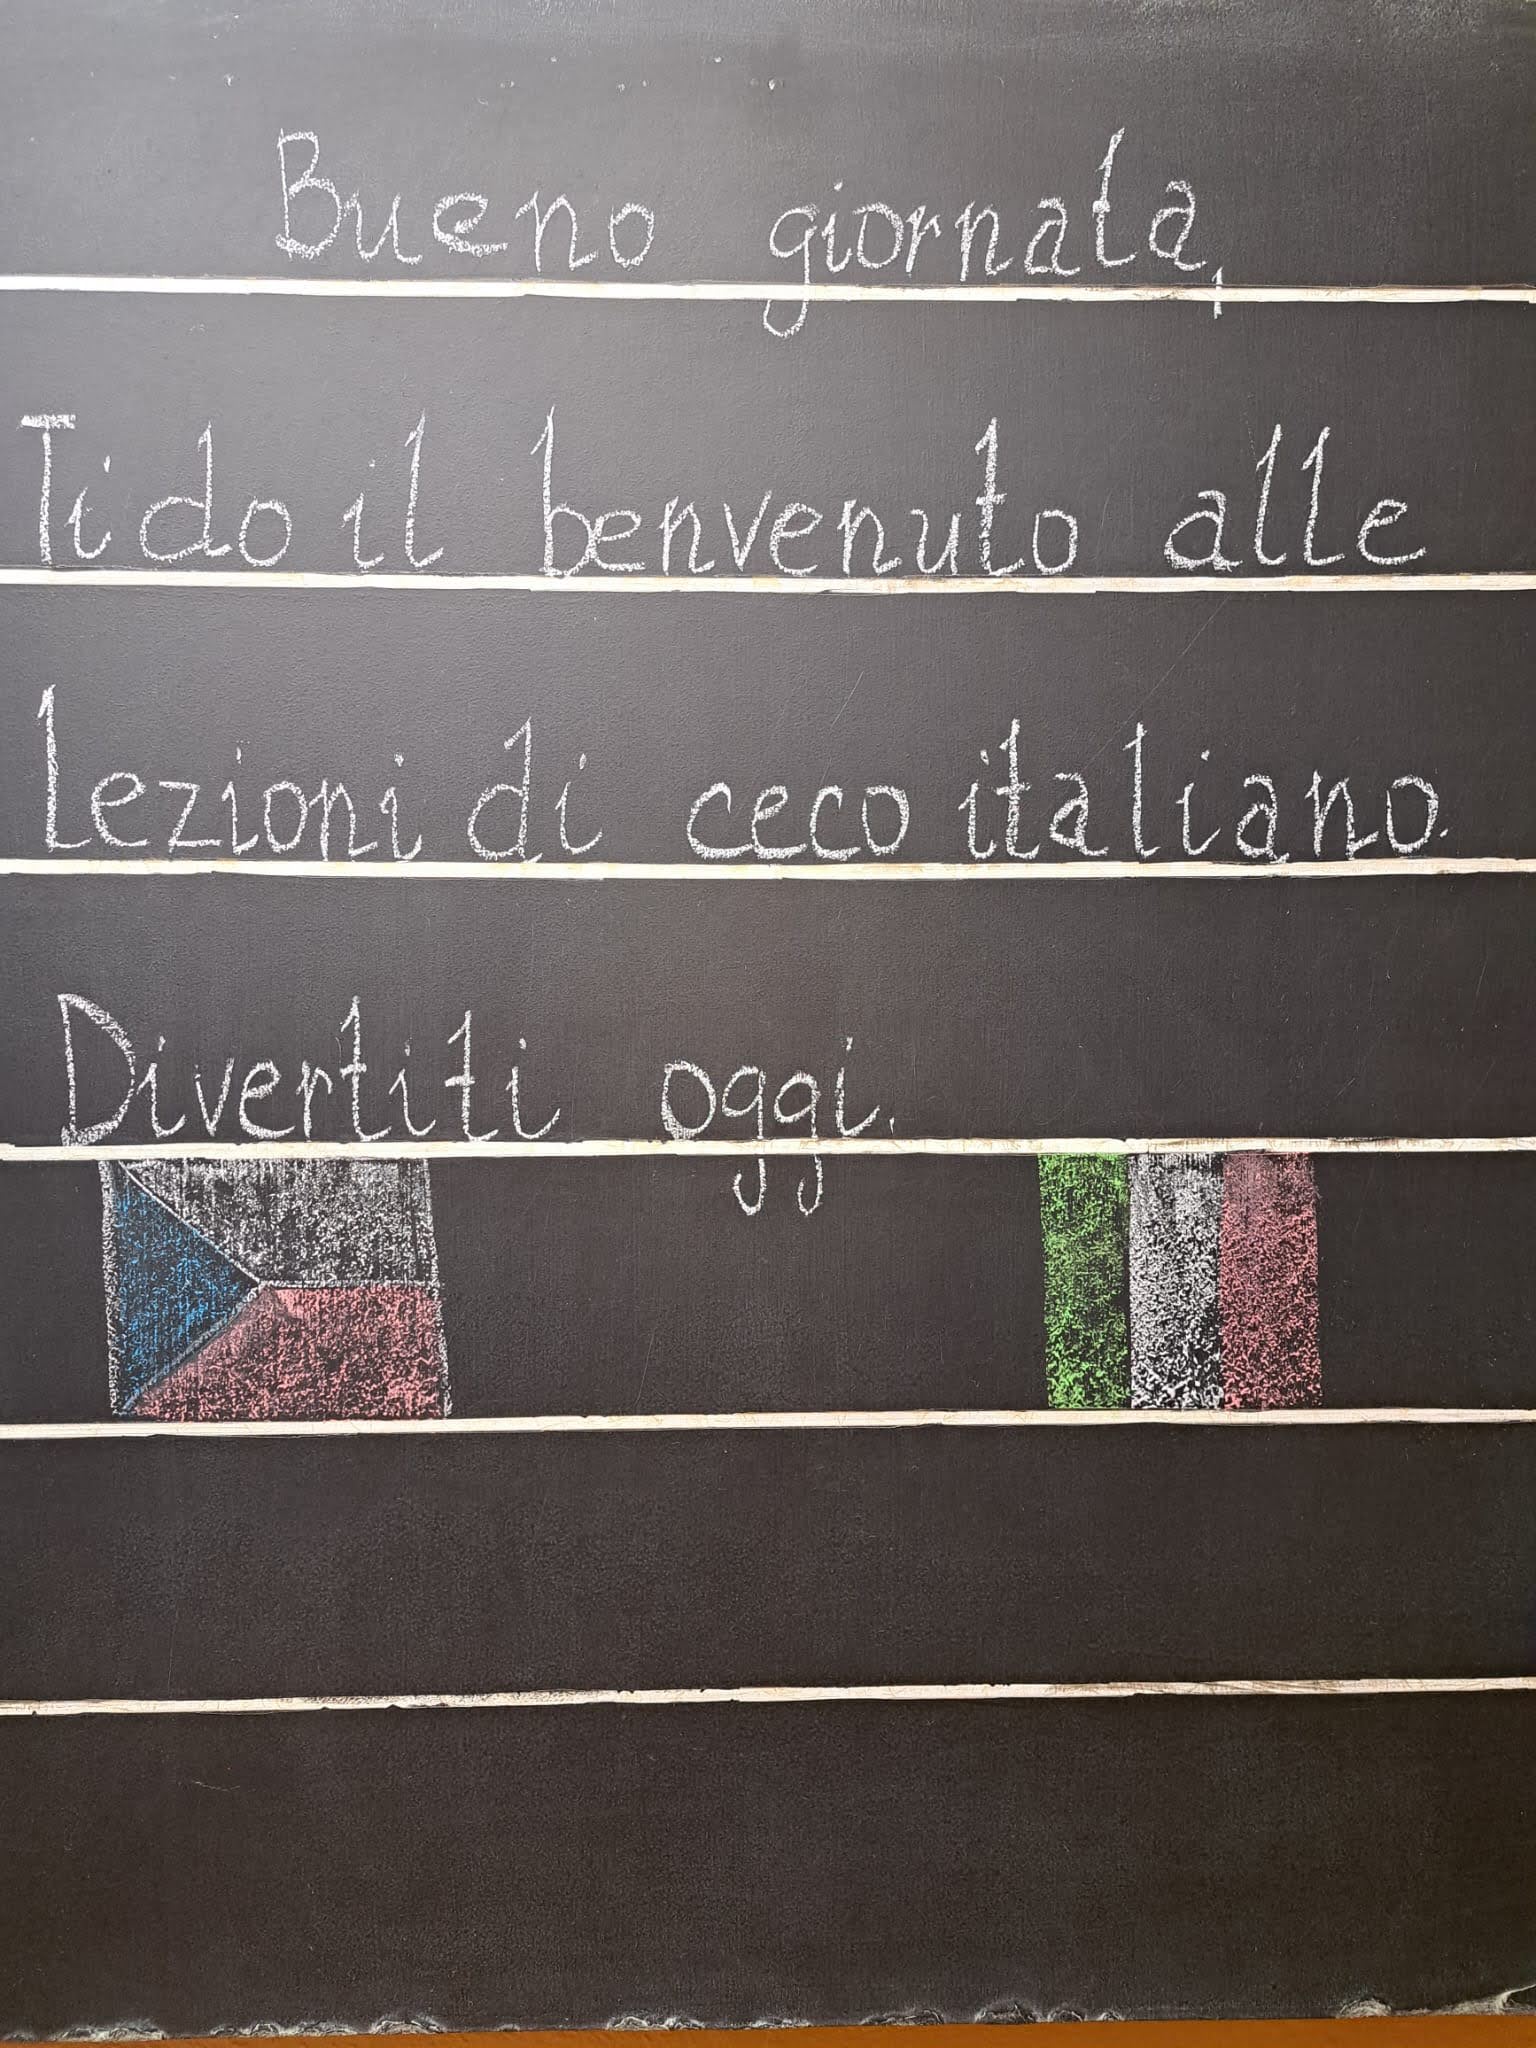 Bueno giornata,
Ti do il benvenuto alle
lezioni di ceco italiano.
Divertiti oggi.